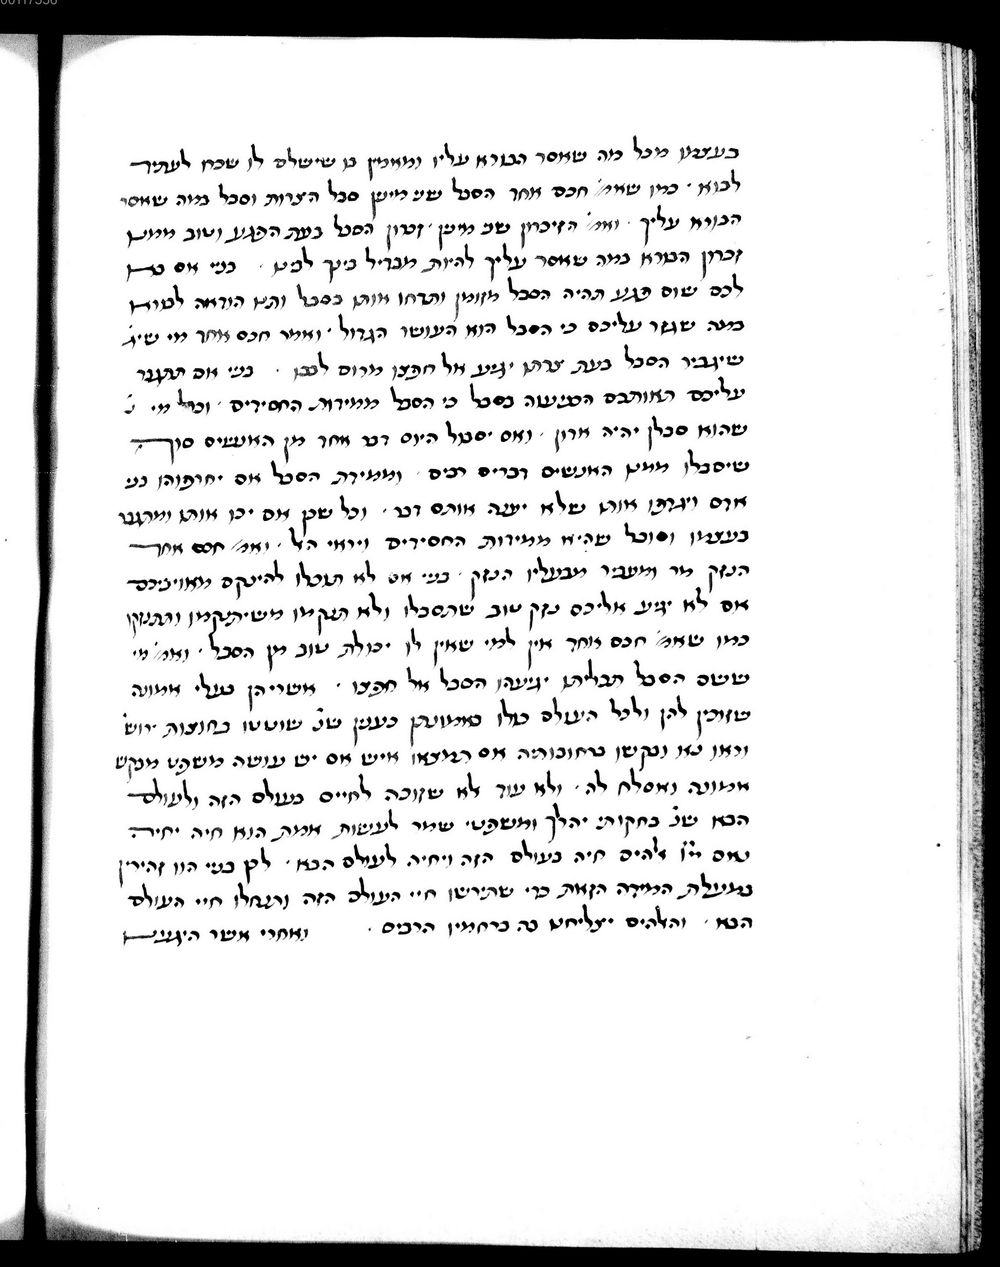 בעצמו מכל מה שאסר הבורא עליו ומאמין בו שישלם לו שכרו לעתיד
לבוא · כמו שאמ׳ חכם אחד הסבל שני מינין סבל הצרות וסבל במה שאסר
הבורא עליך · ואמ׳ הזיכרון שני מינין · זכרון הסבל בעת הפגע וטוב ממנו
זכרון הבורא במה שאסר עליך להיות מבדיל בינך לבינו · בני אם בא
לכם שום פגע תהיה הסבל מזומן ותדחו אותו בסבל ותנו הודאה לבורא
במה שגזר עליכם כי הסבל הוא העושר הגדול · ואמר חכם אחד מי שיג׳
שיגביר הסבל בעת צרתו יגיע אל חפצו מרום לבבו · בני אם תתגבר
עליכם תאותכם הסבל כי הסבל ממידות החסידים · וכל מי
שהוא סבלן יהיה אדון · ואם יסבול היום דבר אחד מן האנשים סוף
שיסבלו ממנו האנשים דברים רבים · וממידת הסבל אם יחרפוהו בני
אדם ויגדפו אותו שלא יענה אותם דבר · וכל שכן אם יכו אותו ומתגבר
בעצמו וסובל שהיא ממידות החסידים ויראי האל · ואמ׳ חכם אחד
הנזק מר ומעביר מבעליו הנזק · בני אם לא תוכלו להינקם מאויביכם
אם לא יגיע אליכם נזק טוב שתסבלו ולא תנקמו משיתנקמו ותתנזקו
כמו שאמ׳ חכם אחד אין למי שאין לו יכולת טוב מן הסבל · ואמ׳ מי
ששם הסבל תכליתו יגיעהו הסבל אל חפצו · אשריהן בעלי אמונה
שזוכין להן ולכל העולם כולו באמונתן כענין שנ׳ שוטטו בחוצות ירוש׳
וראו נא ובקשו ברחובותיה אם תמצאו איש אם יש עושה משפט מבקש
אמונה ואסלח לה · ולא עוד אלא שזוכה לחיים בעולם הזה ולעולם
הבא שנ׳ בחקותי יהלך ומשפטי שמר לעשות אמת הוא חיה יחיה
נאם ייי אלהים חיה בעולם הזה ויחיה לעולם הבא · לכן בני הוו זהירין
במעלת המידה הזאת כדי שתירשו חיי העולם הזה ותנחלו חיי העולם
הבא · והאלהים יצליחנו בה ברחמיו הרבים · ואחרי אשר היגענו